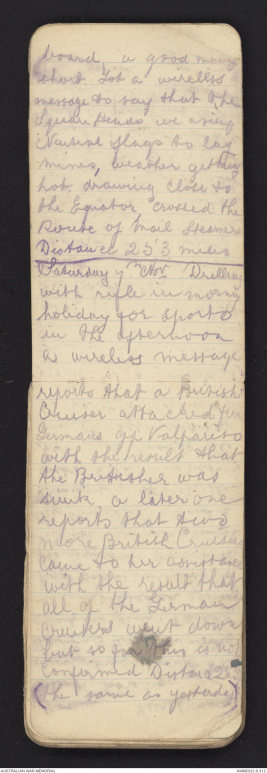 board, a good many
short Got a wireless
message to say that the
Square Heads we using
Neutral flags to lay
mines, weather getting
hot, drawing close to
the Equator crossed the
Route of Mail Steamers
Distance 253 miles
Saturday 7th Nov Drilling
with rifle in morning
holiday for sports
in the afternoon
a wireless message
reports that a British
Cruiser attacked five
Germans off Valpariso
with the result that
the Britisher was
sunk a later one
reports that two
more British Cruisers
came to her assistance
with the result that
all of the German
cruisers went down
but so far this is not
confirmed Distance
(the same as yesterday)
AUSTRALIAN WAR MEMORIAL